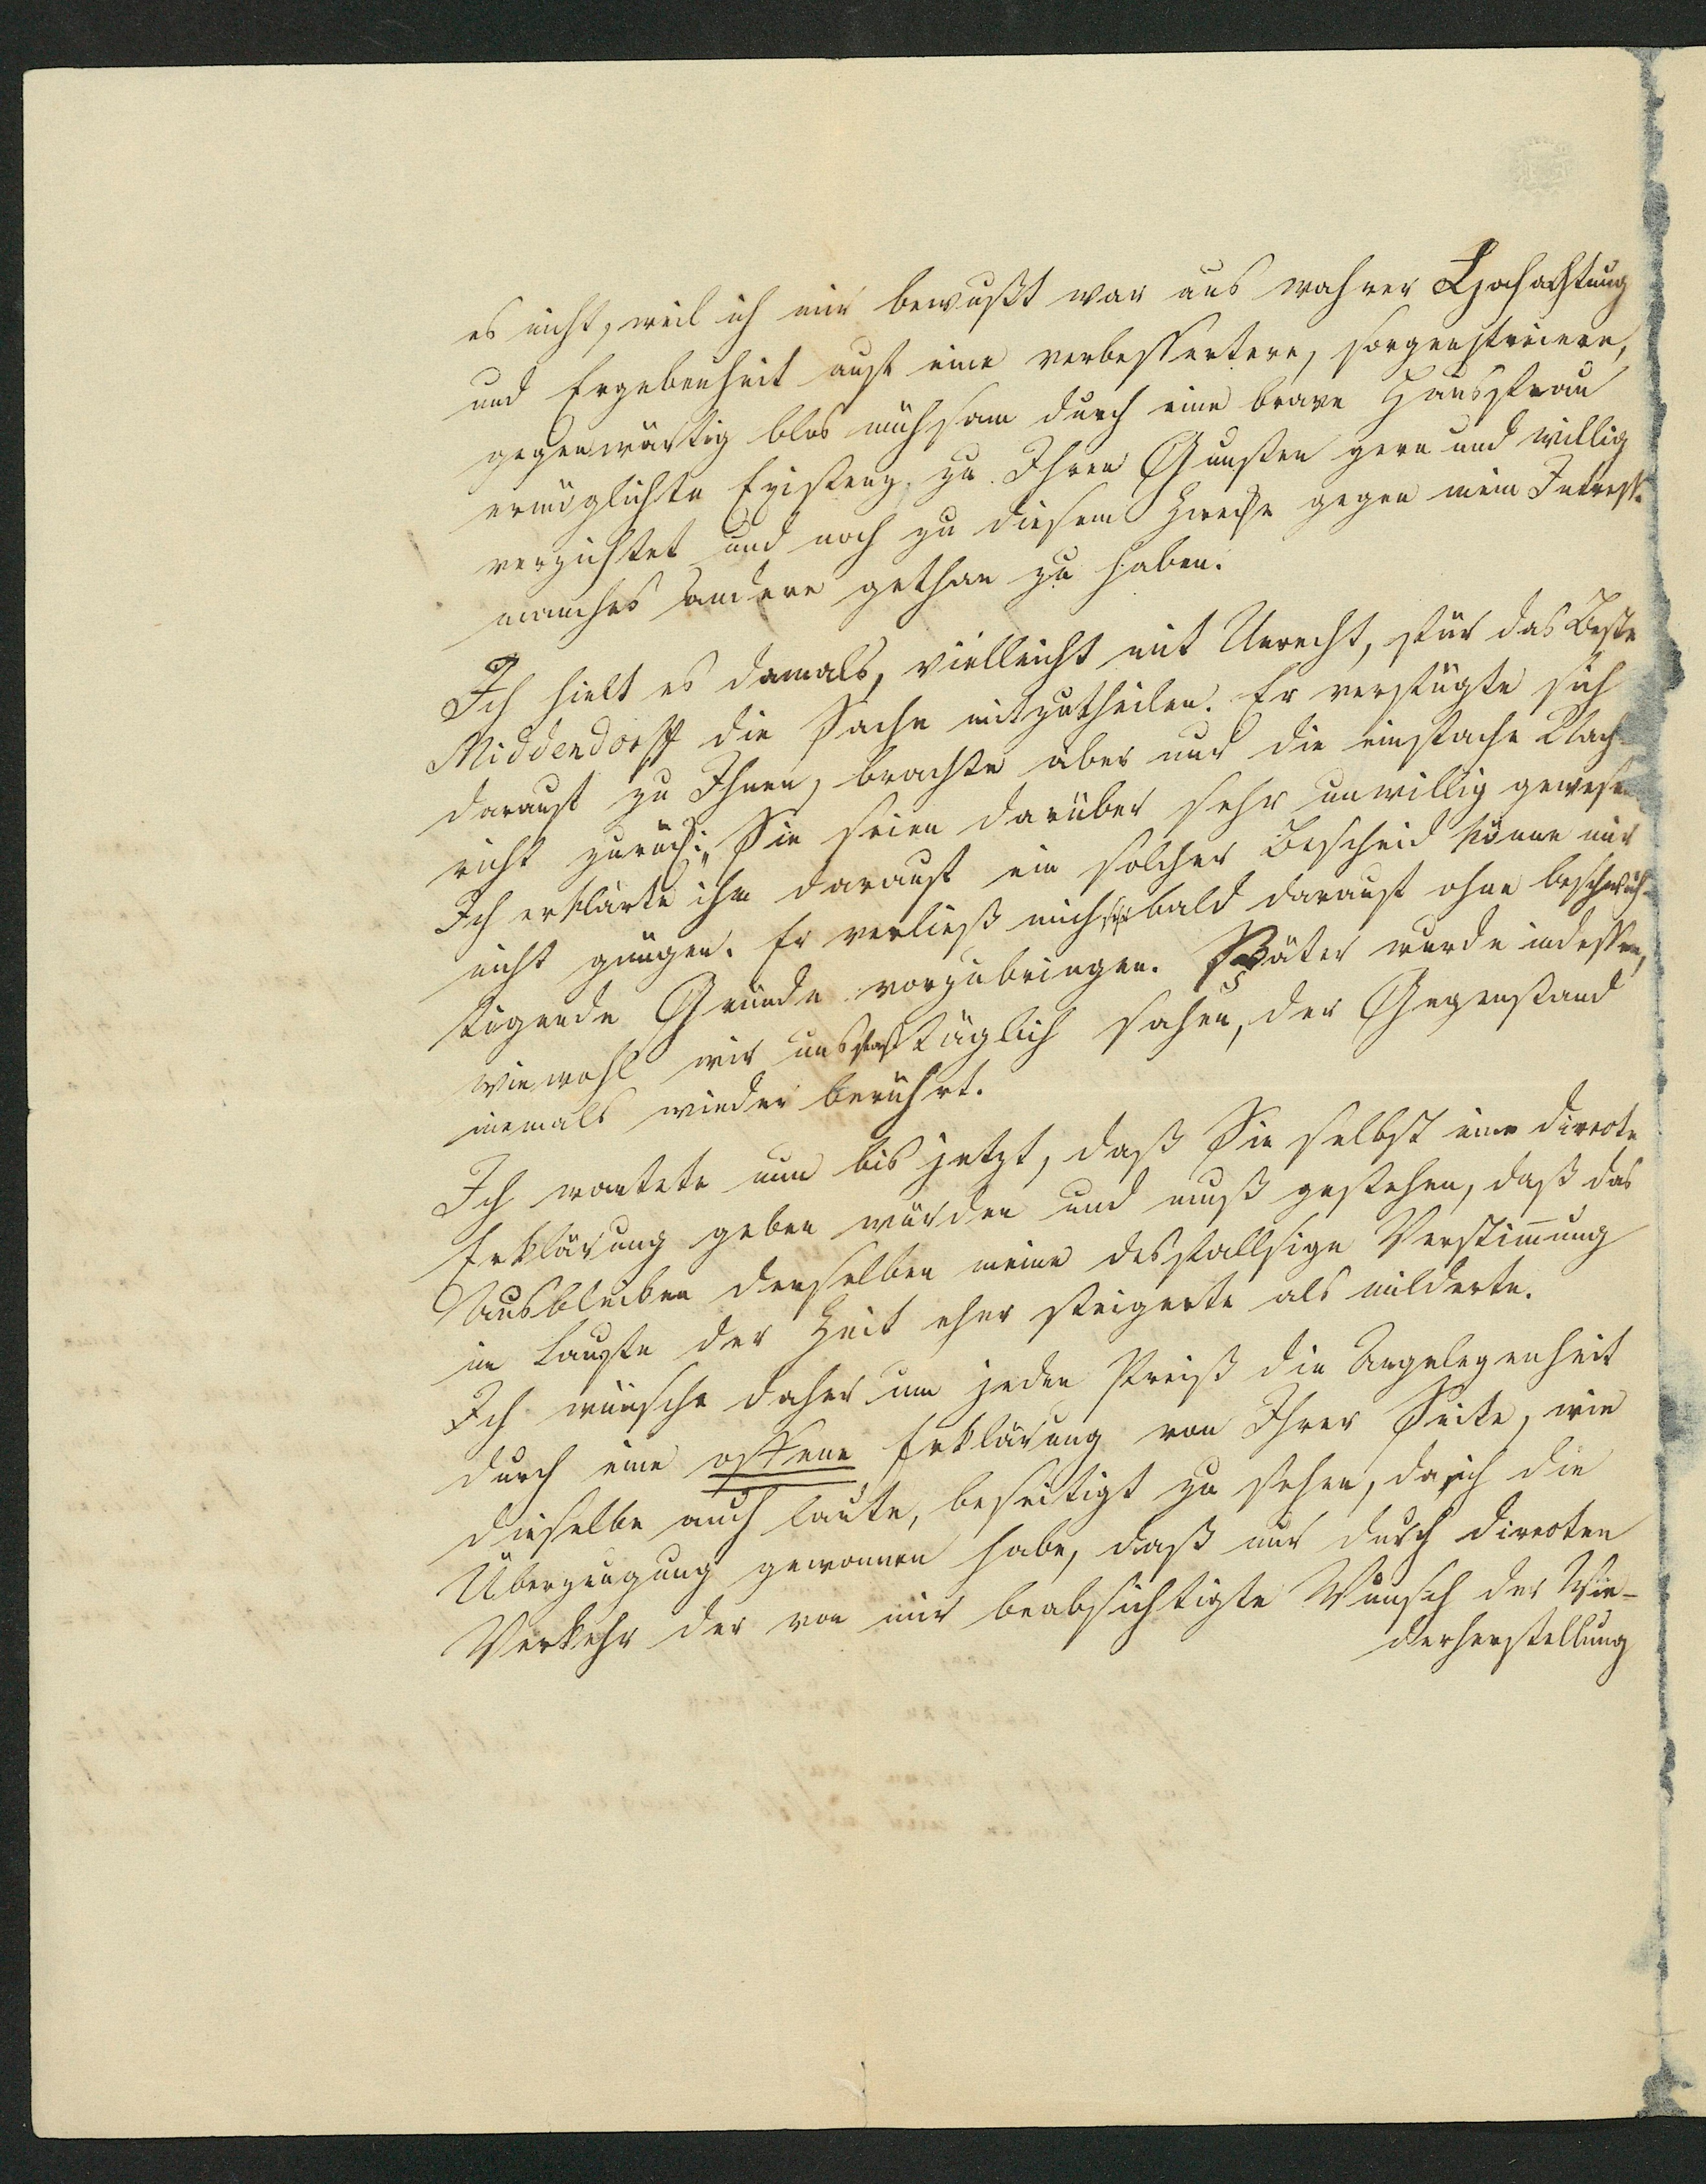 es nicht, weil ich mir bewußt war aus wahrer Hochachtung
und Ergebenheit auf eine verbessertere, sorgenfreiere,
gegenwärtig blos mühsam durch eine brave Hausfrau
ermöglichte Existenz zu Ihren Gunsten gern und willig
verzichtet und noch zu diesem Zwecke gegen mein Interesse
manches andere gethan zu haben.
Ich hielt es damals, vielleicht mit Unrecht, für das Beste
Middendorff die Sache mitzutheilen. Er verfügte sich
darauf zu Ihnen, brachte aber nur die einfache Nach-
richt zurück: Sie seien darüber sehr unwillig gewesen
Ich erklärte ihm darauf ein solcher Bescheid könne mir
nicht gnügen. Er verließ mich bald darauf ohne beschwich-
tigende Gründe vorzubringen. Später wurde indessen,
wiewohl wir uns fast täglich sahen, der Gegenstand
niemals wieder berührt.
Ich wartete nun bis jetzt, daß Sie selbst eine directe
Erklärung geben würden und muß gestehen, daß das
Ausbleiben derselben meine desfallsige Verstimung
im Laufe der Zeit eher steigerte als milderte.
Ich wünsche daher um jeden Preiß die Angelegenheit
durch eine offene Erklärung von Ihrer Seite, wie
dieselbe auch laute, beseitigt zu sehen, da ich die
Überzeugung gewonnen habe, daß nur durch directen
Verkehr der von mir beabsichtigte Wunsch der Wie-
derherstellung